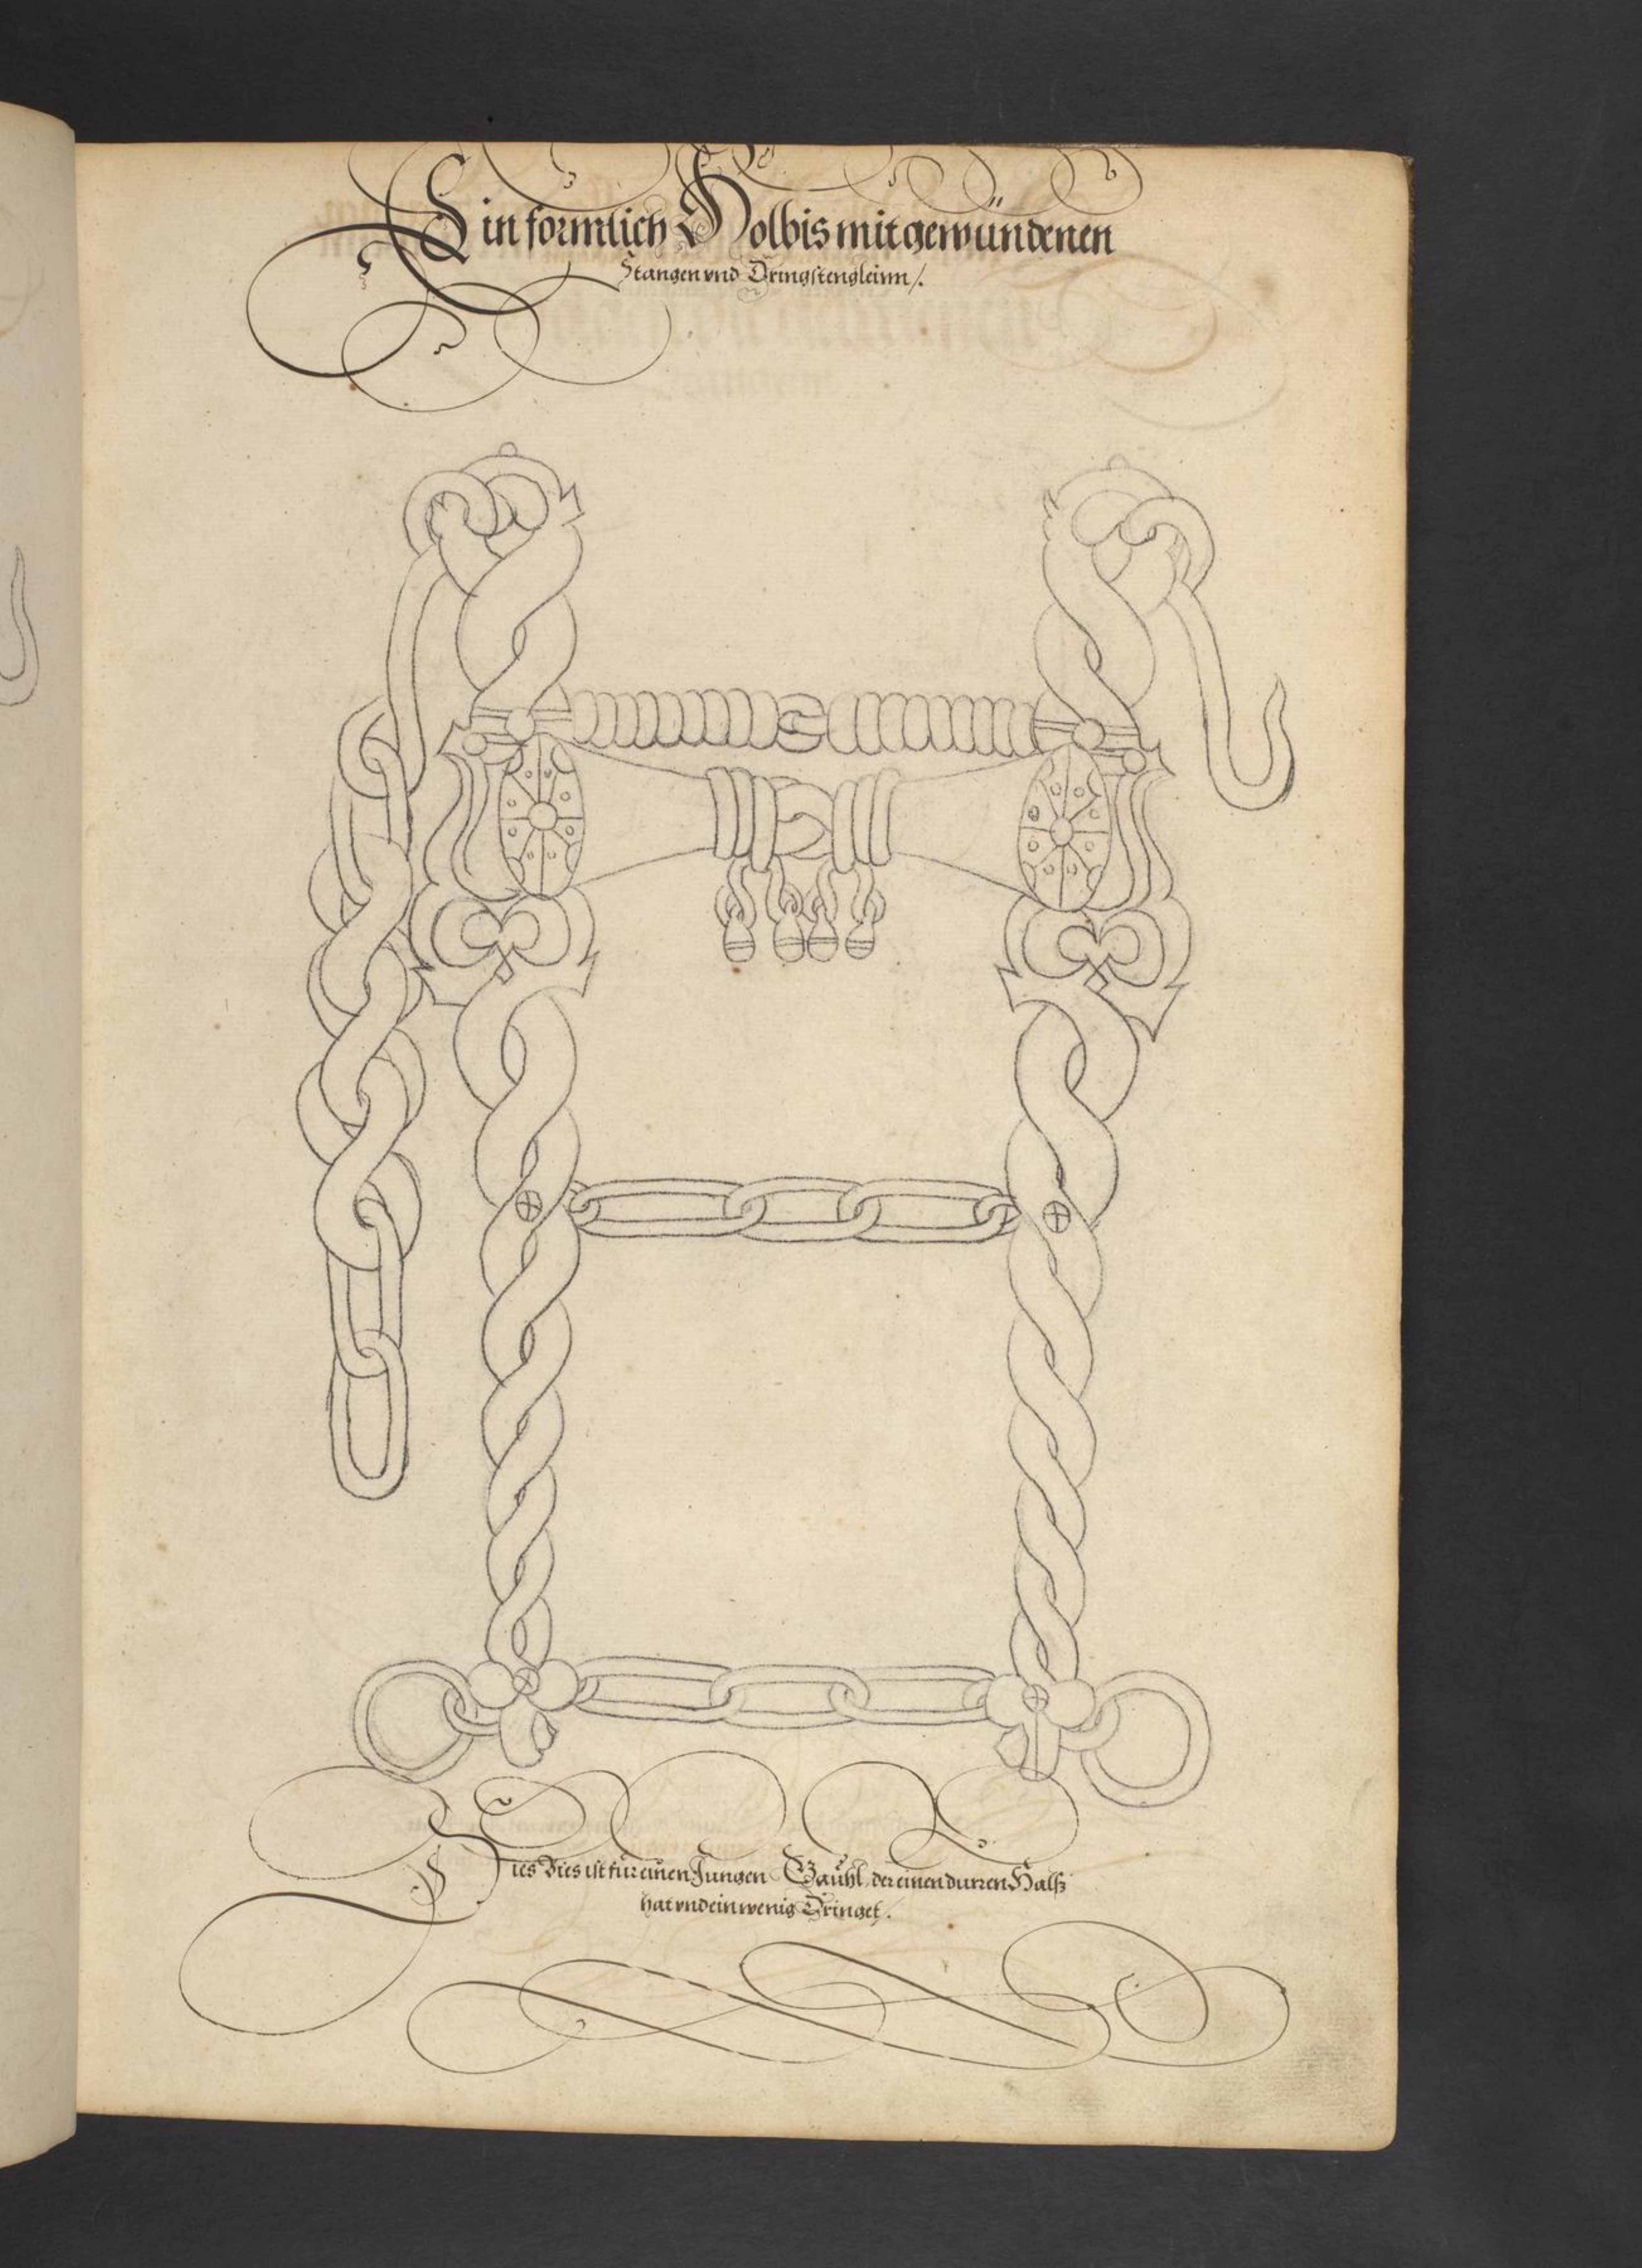 Ein formlich Holbis mit gewündenen
Stangen vnd Dringstengleinn /.
Dies Bies ist für einen Jungen Gaühl der einen dürren Halß
hat vnd ein wenig Dringet /.